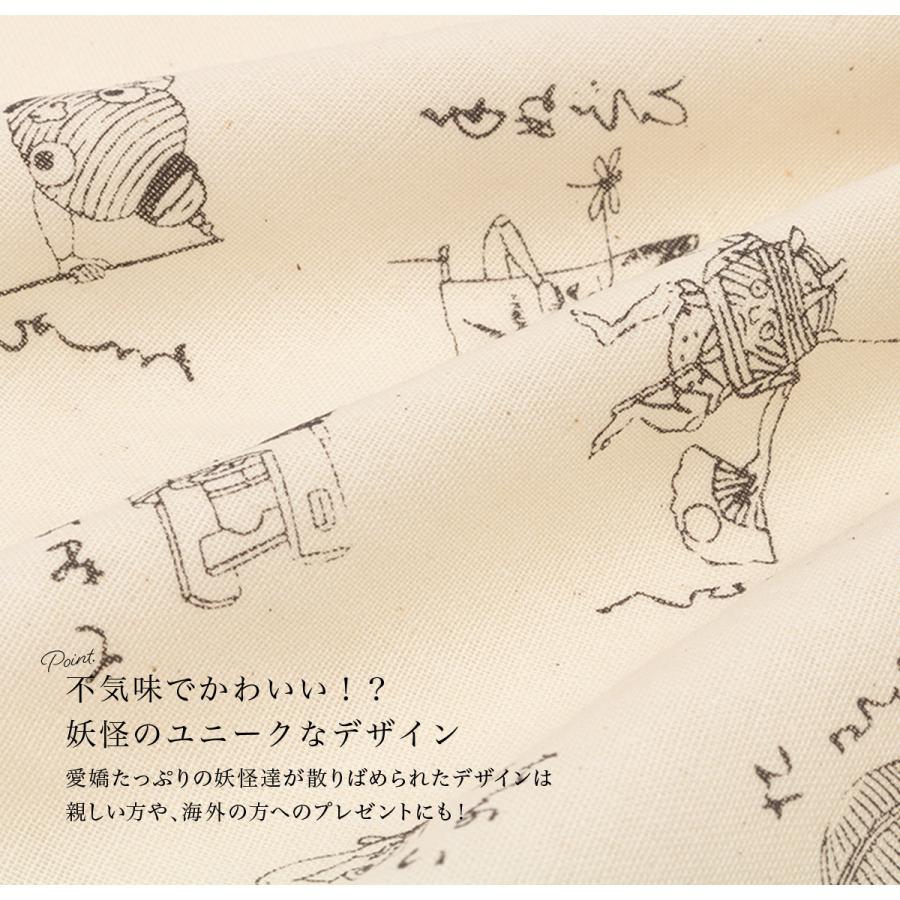 Point.
不気味でかわいい！？
妖怪のユニークなデザイン
愛嬌たっぷりの妖怪達が散りばめられたデザインは
親しい方や、海外の方へのプレゼントにも！